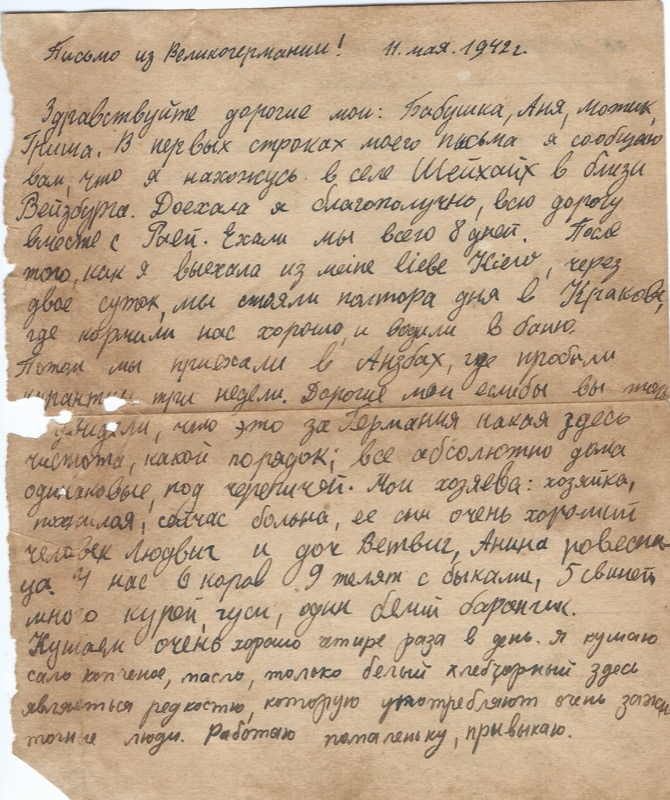 Письмо из Великогермании! 11. мая. 1942г.
Здравствуйте дорогие мои: Бабушка, Аня, Мотик,
Гриша. В первых строках моего письма я сообщаю
вам, что я нахожусь в селе Шейхайх в близи
Вейзбурга. Доехала я благополучно, всю дорогу
вместе с Раей. Ехали мы всего 8 дней. После
того, как я выехала из meine liebe Kiew, через
двое суток, мы стояли полтора дня в Кракове,
где кормили нас хорошо, и водили в баню.
Потом мы приехали в Анзбах, где пробыли
карантин три недели. Дорогие мои еслибы вы
что это за Германия какая здесь
чистота, какой порядок; все абсолютно дома
одинаковые, под черепичей. Мои хозяева: хозяйка,
пожилая, сейчас больна, ее сын очень хороший
человек Людвиг и доч Ветвиг, Анина ровесни-
ца. У нас 6 коров 9 телят с быками, 5 свиней,
много курей, гуси, один белий барончик.
Кушаем очень хорошо четире раза в день. Я кушаю
сало копченое, масло, только белый хлеб, чорный здесь
являеться редкостю, которую употребляют очень зажи
точные люди. Работаю помаленьку, привыкаю.